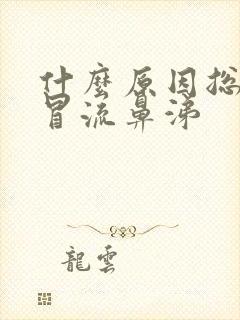 什麼原因总
冒流鼻涕
龍雲